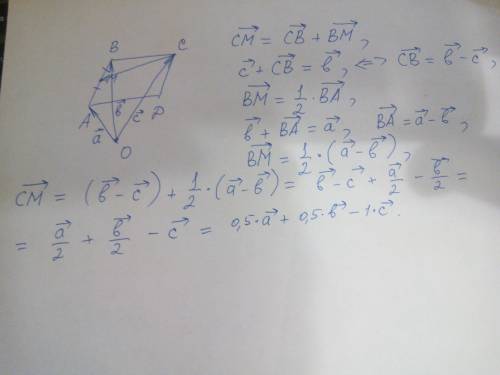 B C
M
A b⃗ c⃗ D
a⃗
O
CM⃗ = CB⃗ + BM⃗,
c⃗ + CB⃗ = b⃗, <=> CB⃗ = b⃗ - c⃗,
BM⃗ = 1/2 · BA⃗,
b⃗ + BA⃗ = a⃗, BA⃗ = a⃗ - b⃗,
BM⃗ = 1/2 · (a⃗ - b⃗),
CM⃗ = (b⃗ - c⃗) + 1/2 · (a⃗ - b⃗) = b⃗ - c⃗ + a⃗/2 - b⃗/2 =
= a⃗/2 + b⃗/2 - c⃗ = 0,5·a⃗ + 0,5·b⃗ - 1·c⃗.